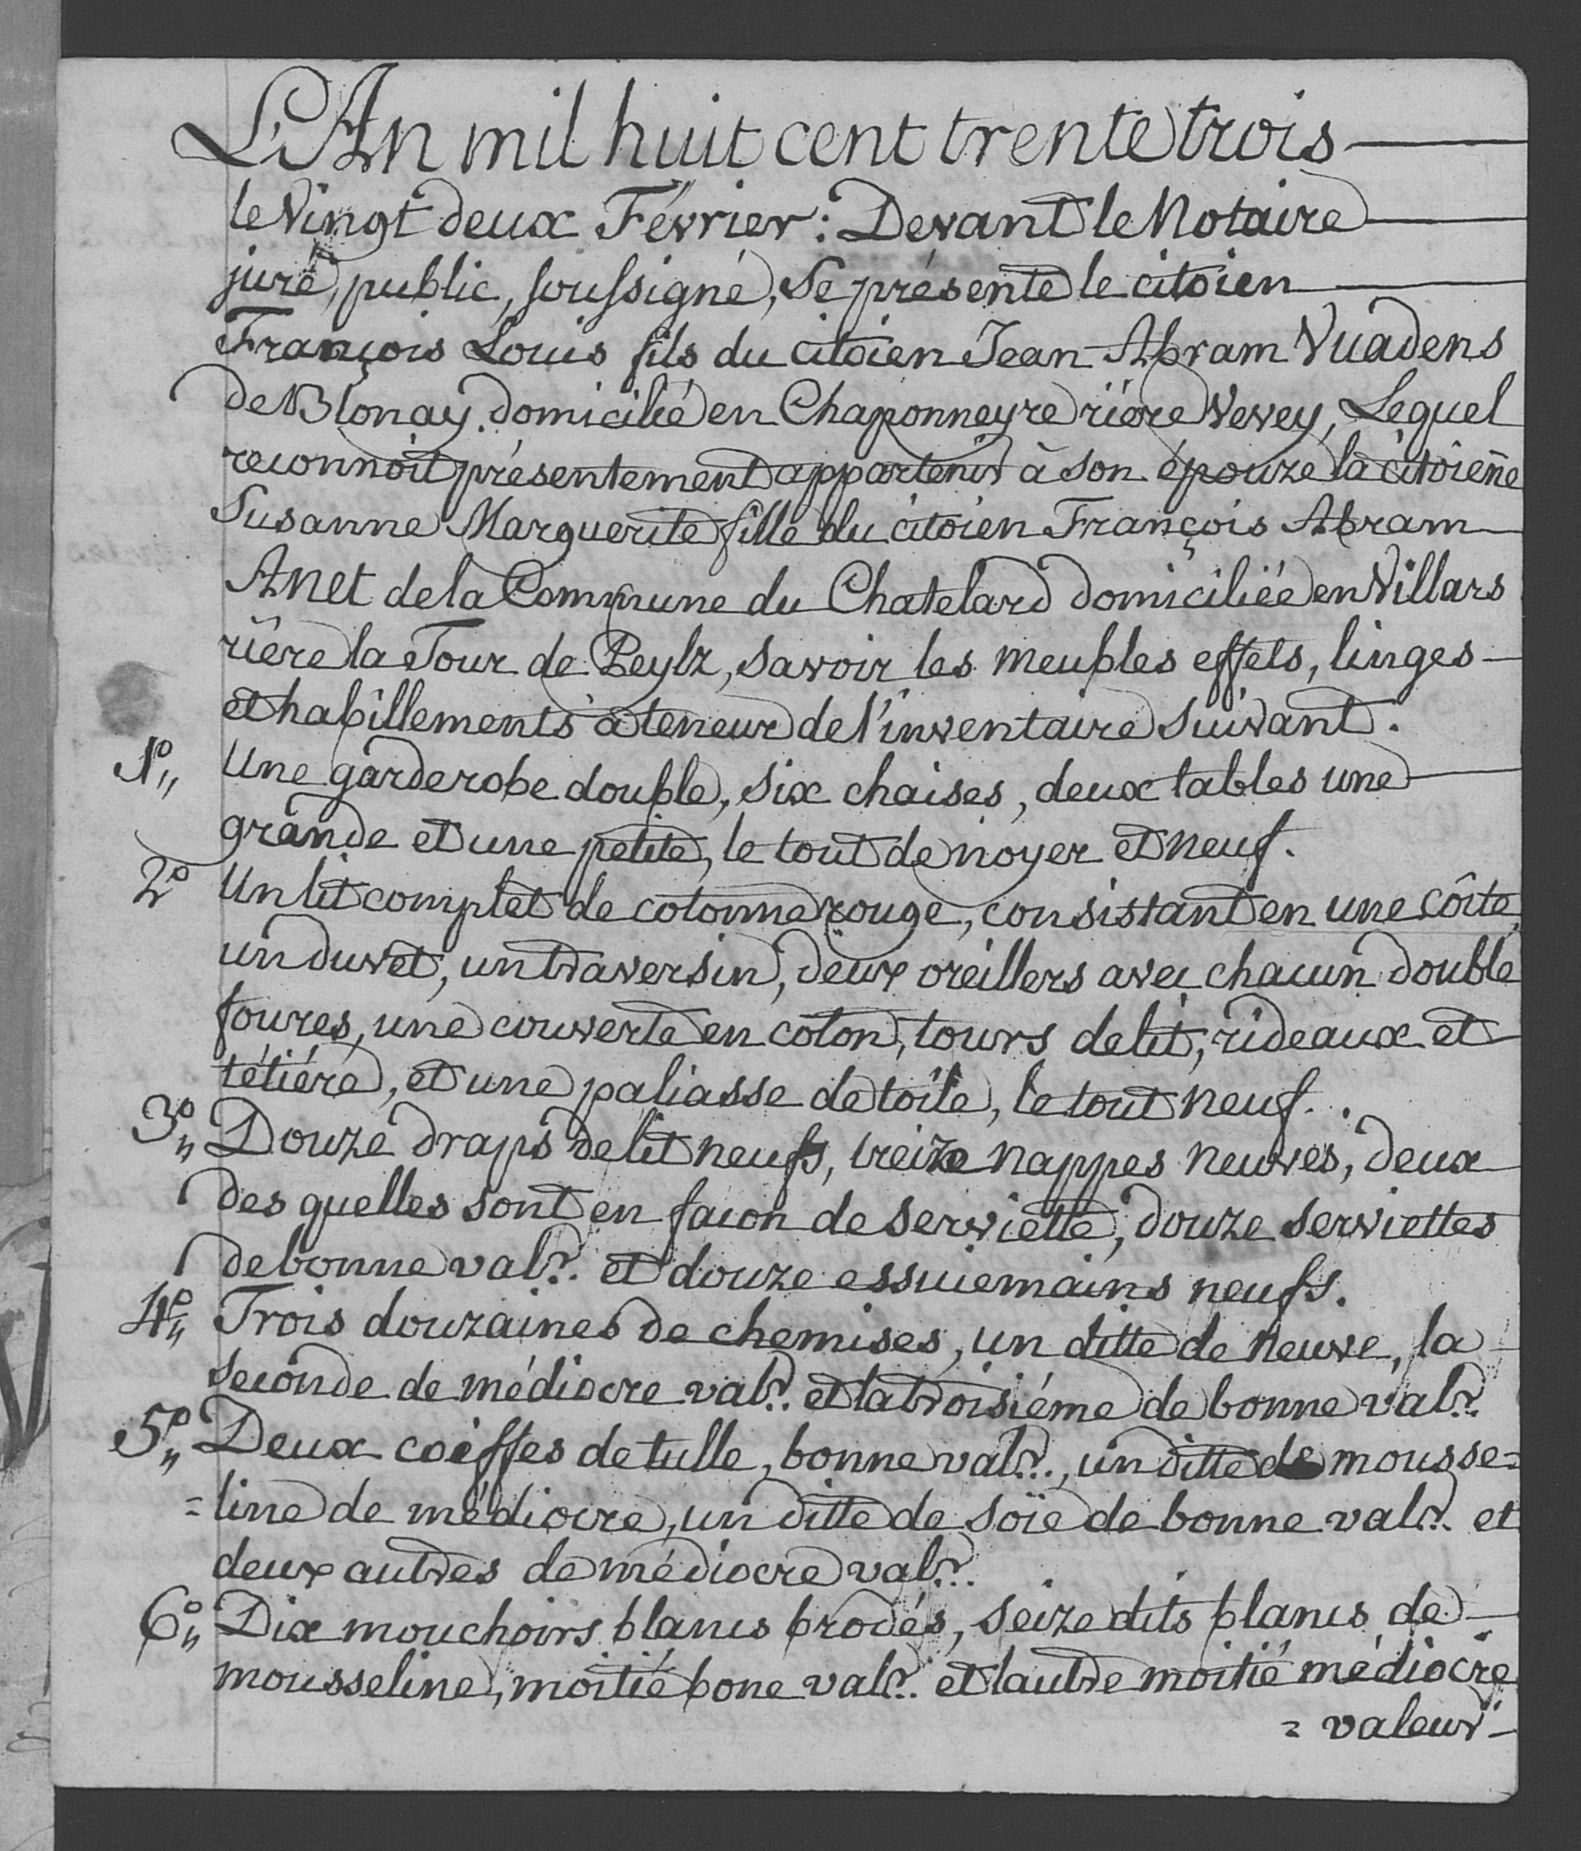 L'An mil huit cent trente trois
le Vingt deux Février : Devant le Notaire
juré, public, soussigné, Se présente le citoien
François Louis fils du citoien Jean Abram Vuadens
de Blonay domicilié en Chaponneyre rière Vevey, Lequel
reconnoit présentement appartenir à son épouze la citoiene
Susanne Marguerite fille du citoien François Abram
Anet de la Commune du Chatelard domiciliée en Villars
rière la Tour de Peylz, savoir les meubles effets, linges
et habillements à teneur de l'inventaire suivant.
1º„ Une garderobe double, six chaises, deux tables une
grande et une petite, le tout de noyer et neuf.
2º Un lit complet de cotonne rouge, consistant en une côite,
un duvet, un traversin, deux oreillers avec chacun double
foures, une couverte en coton, tours de lit, rideaux et
tétiére, et une paliasse de toile, le tout neuf.
3º„ Douze draps de lit neufs, treize nappes neuves, deux
des quelles sont en facon de serviette, douze serviettes
de bonne valr. et douze essuiemains neufs.
4º„ Trois douzaines de chemises, un ditte de neuve, la
seconde de médiocre valr. et la troisiéme de bonne valr.
5º„ Deux coëffes de tulle, bonne valr., un ditte de mousse=
=line de médiocre, un ditte de soïe de bonne valr. et
deux autres de médiocre valr.
6º„ Dix mouchoirs blancs brodés, seize dits blancs de
mousseline, moitié bone valr. et lautre moitié médiocre
= valeur